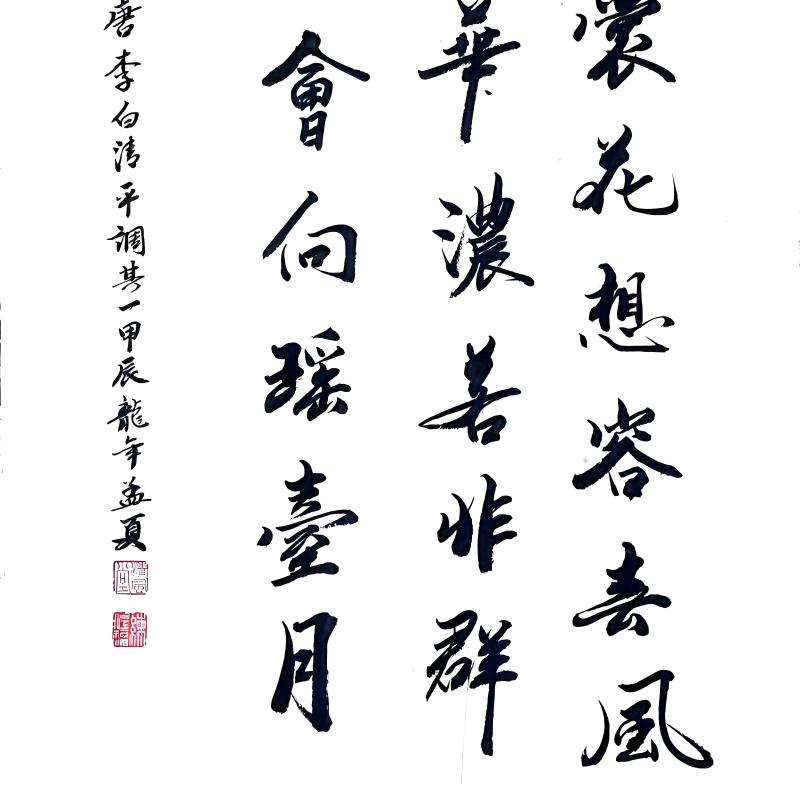 裳花想容春風
華濃若非群
會向瑶臺月
唐李白清平調其一甲辰龍年孟夏